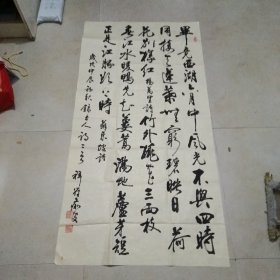 畢竟西湖六月中風光不與四時
同接天蓮葉無窮碧映日荷
花別樣紅 楊萬里詩 竹外桃花三兩枝
春江水暖鴨先知蔞蒿滿地蘆芽短
正是豚欲上時 蘇東坡詩
古人詩二首